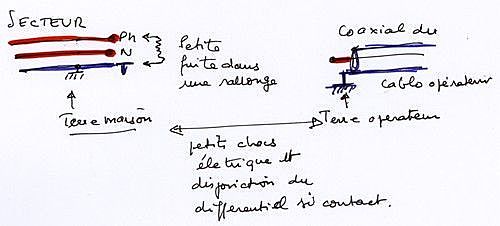 SECTEUR
Ph
N
T
Petite
fuite dans
une rallonge
Terre maison
Coaxial du
cablo opérateur
Terre operateur
petits chocs
électrique et
disjonction du
differentiel si contact.